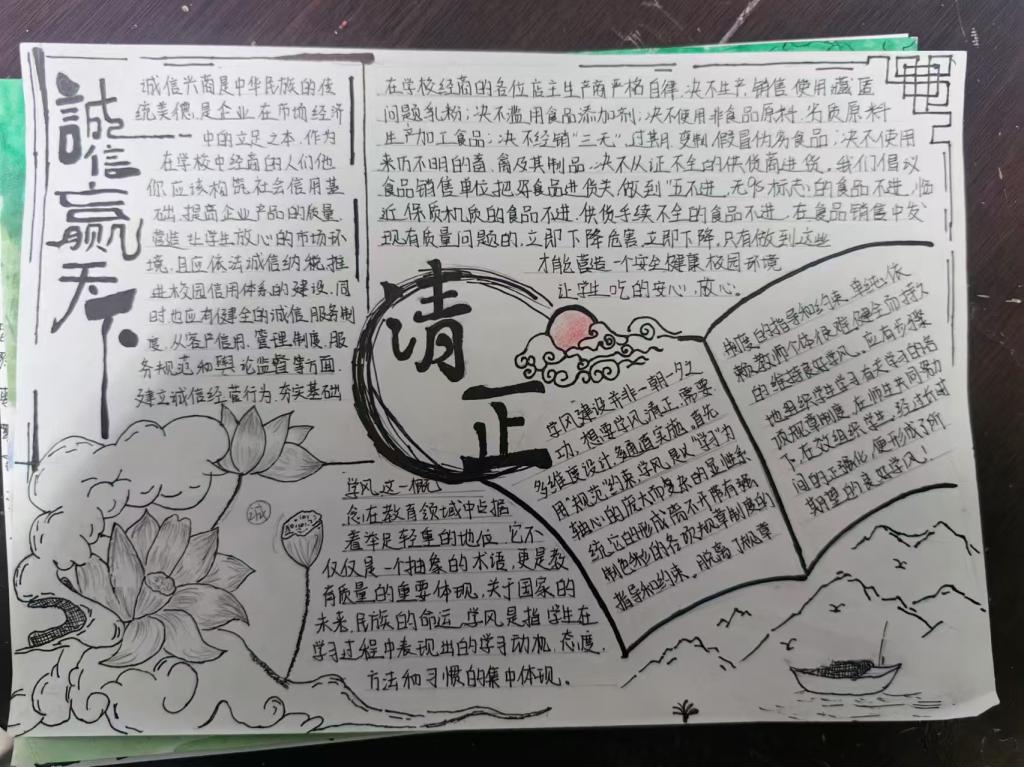 誠信赢天下
诚信兴商是中华民族的传
统美德,是企业在市场经济
中的立足之本,作为
在学校中经商的人们他
你应该构筑社会信用基
础,提高企业产品的质量,
营造让学生放心的市场环
境,且应依法诚信纳税,推
进校园信用体系的建设,同
时也应有健全的诚信服务制
度,从客户信用,管理制度,服
务规范和舆论监督等方面,
建立诚信经营行为,夯实基础
在学校经商的各位店主生产商严格自律,决不生产,销售,使用藏匿
问题乳粉;决不滥用食品添加剂;决不使用非食品原料,劣质原料
生产加工食品;决不经销“三无”,过期,变制,假冒伪劣食品;决不使用
来历不明的畜,禽及其制品;决不从证不全的供货商进货。我们倡议
食品销售单位,把好食品进货关,做到“五不进”,无标志的食品不进,临
近保质机质的食品不进,供货手续不全的食品不进,在食品销售中发
现有质量问题的,立即下降危害,立即下降,只有做到这些
才能营造一个安全健康校园环境
让学生吃的安心,放心。
清
正
学风这一概
念在教育领域中占据
着举足轻重的地位,它不
仅仅是一个抽象的术语,更是教
育质量的重要体现,关于国家的
未来,民族的命运,学风是指学生在
学习过程中表现出的学习动机,态度,
方法和习惯的集中体现。
学风建设并非一朝一夕之
功,想要学风清正,需要
多维度设计,多通道实施,首先
用规范约束,学风是以“学习”为
轴心的庞大而复杂的显性系
统,它的形成需不开带有强
制色彩的各项规章制度的
指导和约束。脱离了规章
制度的指导和约束,单纯依
赖教师个体很难健全而持久
的维持良好学风。应有步骤
地组织学生学习有关学习的各
项规章制度,在师生共同努力
下,在效组织学生,经过长时
间的正强化,便形成了所
期望的良好学风!
诚